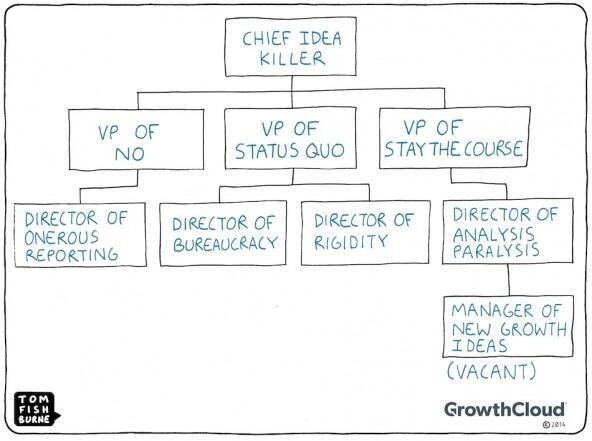 CHIEF IDEA
KILLER
VP OF
NO
VP OF
STATUS QUO
VP OF
STAY THE COURSE
DIRECTOR OF
ONEROUS
REPORTING
DIRECTOR OF
BUREAUCRACY
DIRECTOR OF
RIGIDITY
DIRECTOR OF
ANALYSIS
PARALYSIS
MANAGER OF
NEW GROWTH
IDEAS
(VACANT)
TOM
FISH
BURNE
GrowthCloud
© 2014